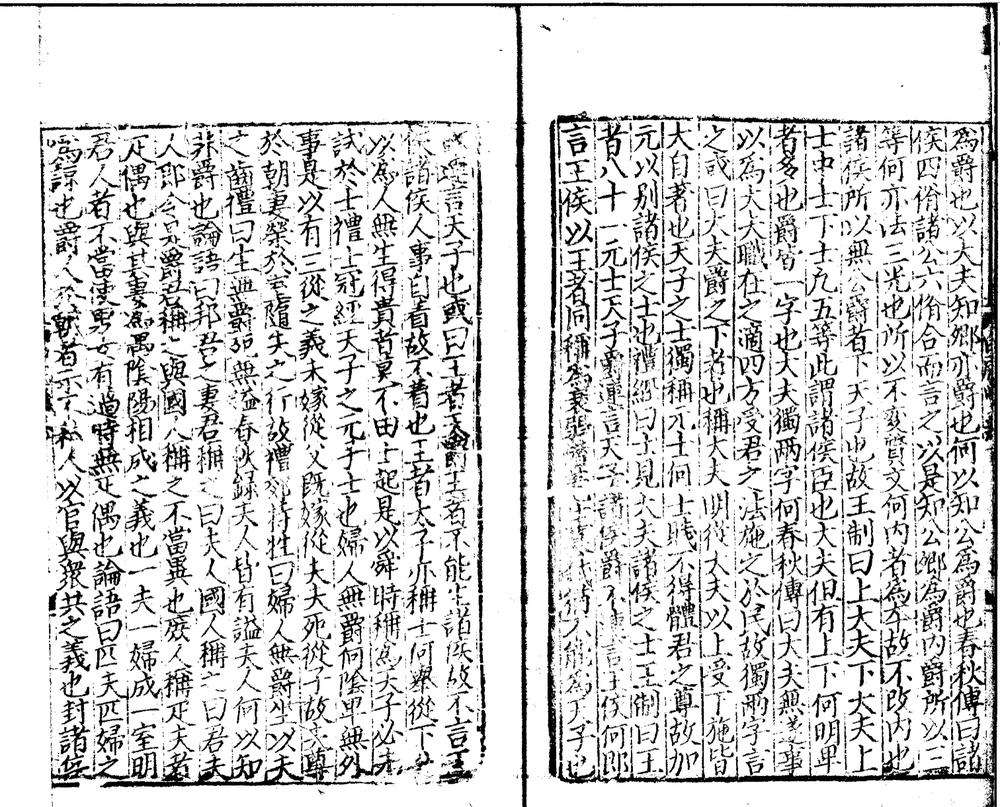 為爵也以大夫知卿亦爵也何以知公為爵也春秋傳曰諸
侯四佾諸公六佾合而言之以是知公卿為爵内爵所以三
等何亦法三光也所以不變質文何内者為本故不改内也
諸侯所以無公爵者下天子也故王制曰上大夫下大夫上
士中士下士凡五等此謂諸侯臣也大夫但有上下何明卑
者多也爵皆一字也大夫獨两字何春秋傳曰大夫無遂事
以為大夫職在之適四方受君之法施之於民故獨兩字言
之或曰大夫爵之下者也稱大夫明從大夫以上受下施皆
大自著也天子之士獨稱元士何士賎不得體君之尊故加
元以别諸侯之士也禮經曰士見大夫諸侯之士王制曰王
者八十一元士天子爵連言天子諸侯爵不連言王侯何即
言王侯以王者同稱為衰弱僭差生猶不能為天子也
故連言天子也或曰王者天爵王者不能生諸侯故不言王
侯諸侯人事自著故不著也王者太子亦稱士何舉從下升
以為人無生得貴者莫不由士起是以舜時稱為天子必先
試於士禮士冠經天子之元子士也婦人無爵何陰卑無外
事是以有三從之義未嫁從父既嫁從夫夫死從子故夫尊
於朝妻榮於室隨夫之行故禮郊特牲曰婦人無爵坐以夫
之齒禮曰生無爵死無謚春秋録夫人皆有謚夫人何以知
非爵也論語曰邦君之妻君稱之曰夫人國人稱之曰君夫
人即令是爵君稱之與國人稱之不當異也庶人稱疋夫者
疋偶也與其妻為偶陰陽相成之義也一夫一婦成一室明
君人者不當使男女有過時無疋偶也論語曰匹夫匹婦之
為諒也爵人於朝者示不私人以官與衆共之義也封諸侯